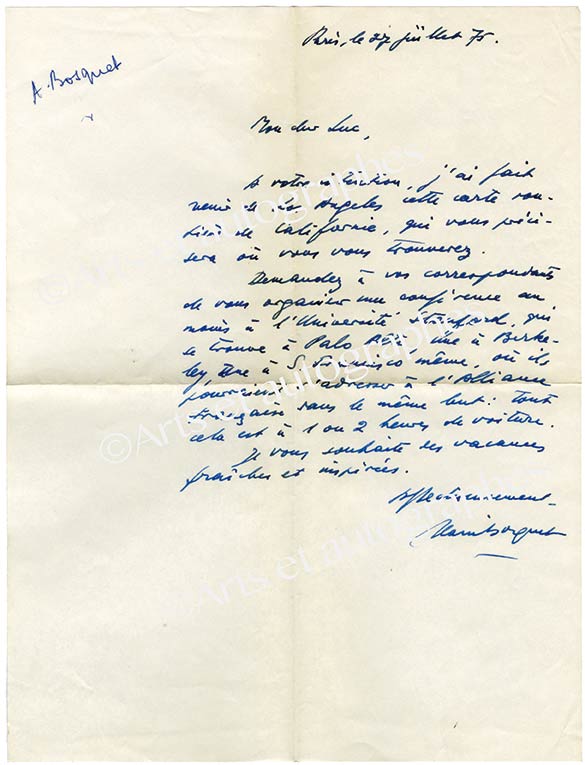 Paris, le 27 juillet 75.
A. Bosquet
Mon cher Luc,
A votre intention, j'ai fait
venir de Los Angeles cette carte rou-
tière de Californie, qui vous préci-
sera où vous vous trouverez.
Demandez à vos correspondants
de vous organiser une conférence au
moins à l'Université Stanford, qui
se trouve à Palo Alto. Une à Berke-
ley Une à S. Francisco même, où ils
pourraient s'adresser à l'Alliance
Française dans le même but : tout
cela est à 1 ou 2 heures de voiture.
Je vous souhaite des vacances
fraîches et inspirées.
Affectueusement
Alain Bosquet
©Arts et autographes
©Arts et autographes
©Arts et autographes